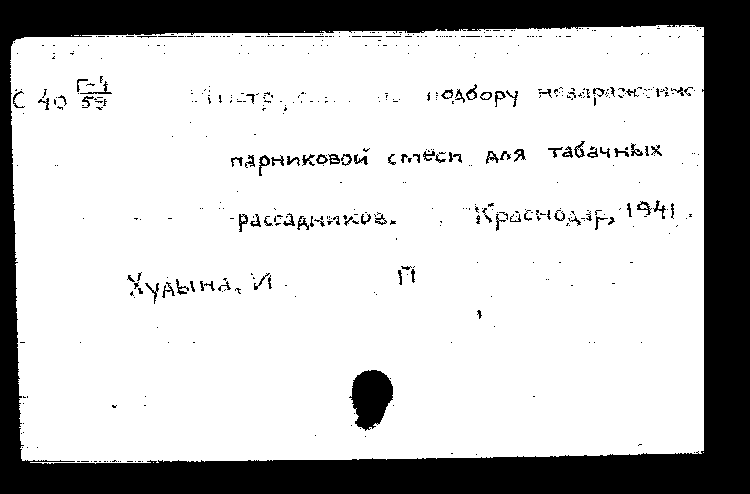 С 40 Г-4/59 Инструкция по подбору незараженно
парниковой смеси для табачных
рассадников. Краснодар, 1941.
Худына, И П